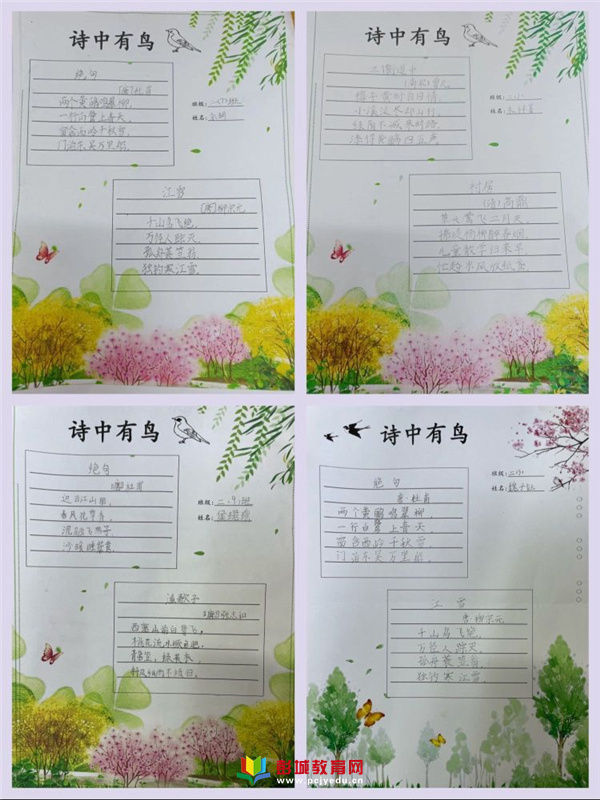 诗中有鸟
绝句
[唐]杜甫
两个黄鹂鸣翠柳,
一行白鹭上青天,
窗含西岭千秋雪,
门泊东吴万里船.
班级:二、(7)班
姓名:
江雪
[唐]柳宗元
千山鸟飞绝,
万径人踪灭.
孤舟蓑笠翁
独钓寒江雪.
诗中有鸟
三衢道中
梅子黄时日日晴,
小溪泛尽却山行.
绿阴不减来时路
添得黄鹂四五声
班级:
姓名:
村居
[清]高鼎
草长莺飞二月天,
拂堤杨柳醉春烟.
儿童散学归来早
忙趁东风放纸鸢
诗中有鸟
绝句
[唐]杜甫
迟日江山丽,
春风花草香.
泥融飞燕子
沙暖睡鸳鸯.
班级:
姓名:
渔歌子
[唐]张志和
西塞山前白鹭飞,
桃花流水鳜鱼肥.
青箬笠,绿蓑衣,
斜风细雨不须归.
诗中有鸟
绝句
唐·杜甫
两个黄鹂鸣翠柳,
一行白鹭上青天,
窗含西岭千秋雪
门泊东吴万里船.
班级:
姓名:
江雪
唐·柳宗元
千山鸟飞绝,
万径人踪灭.
孤舟蓑笠翁,
独钓寒江雪.
彭城教育网
www.pcjyedu.cn